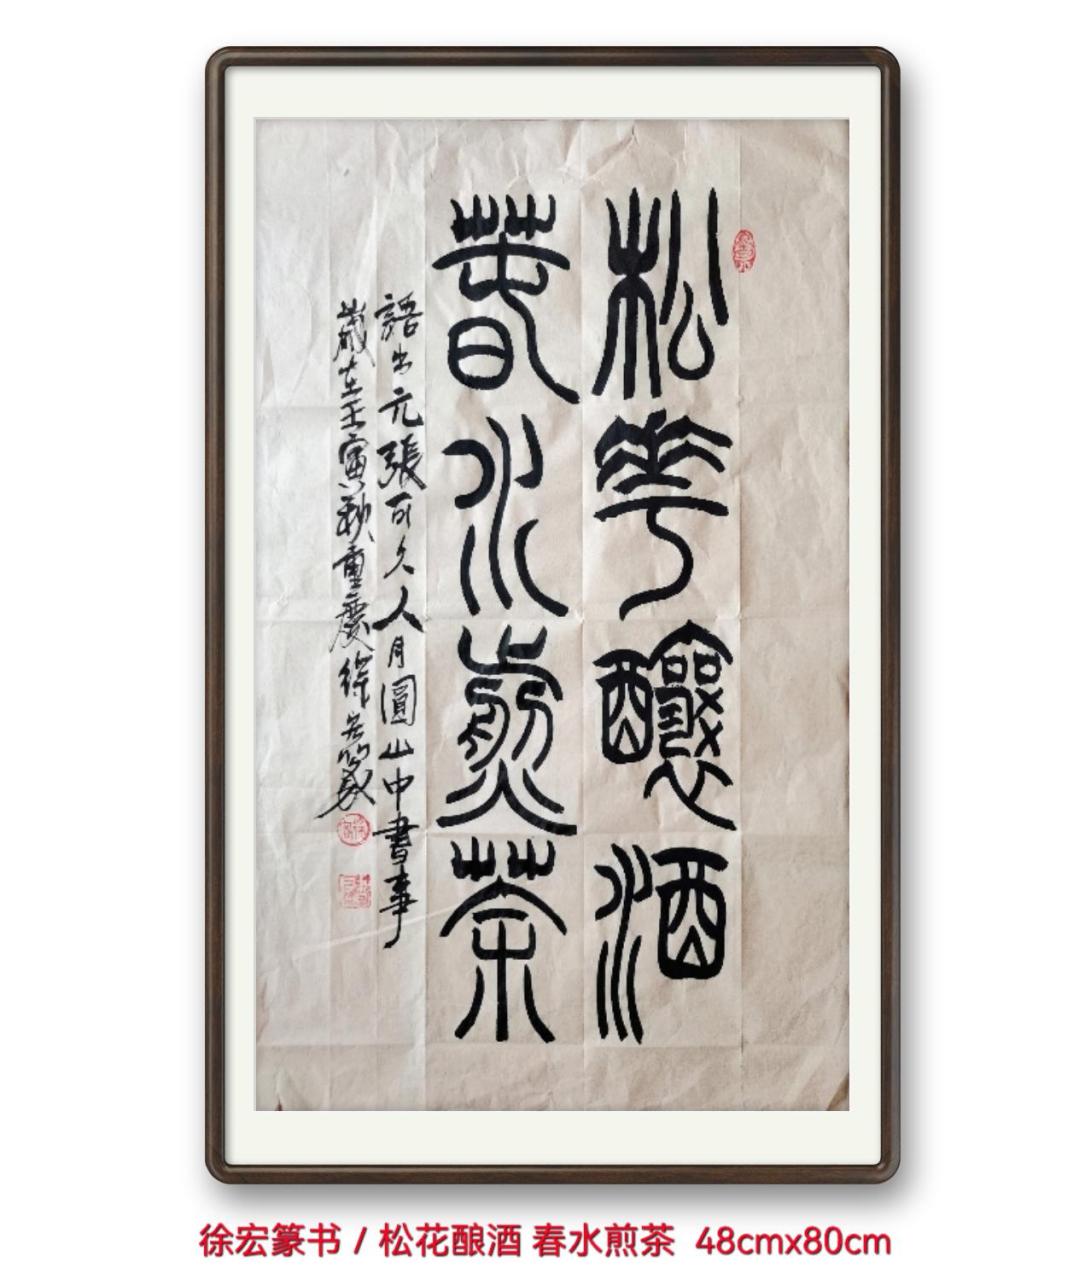 松華釀酒
春水煎茶
語出元張可久人月圓山中書事
歲在壬寅秋重慶徐宏篆
徐宏篆书 / 松花酿酒 春水煎茶 48cmx80cm